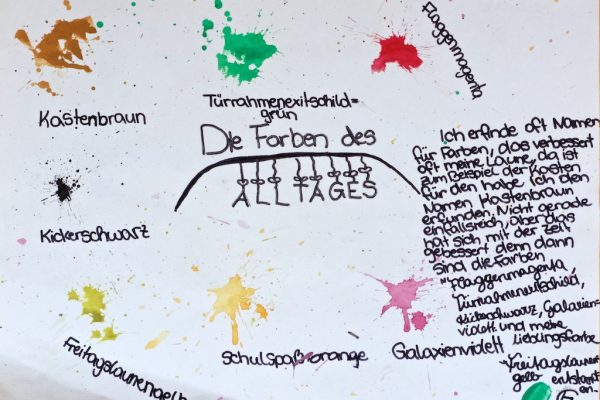 Flaggenmagenta
Kastenbraun
Türrahmenexitschild=
grün
Die Farben des
ALLTAGES
Kickerschwarz
Freitagslaunengelb
Schulspaßorange
Galaxienviolett
Ich erfinde oft Namen
für Farben, das verbessert
oft meine Laune, da ist
zum Beispiel der Kasten
für den habe ich den
Namen Kastenbraun
erfunden. Nicht gerade
einfallsreich, aber das
hat sich mit der Zeit
gebessert denn dann
sind die Farben
"Flaggenmagenta,
Türrahmenexitschild,
Kickerschwarz, Galaxien=
violett und meine
Lieblingsfarbe
"Freitagslaunen
gelb entstand
en.